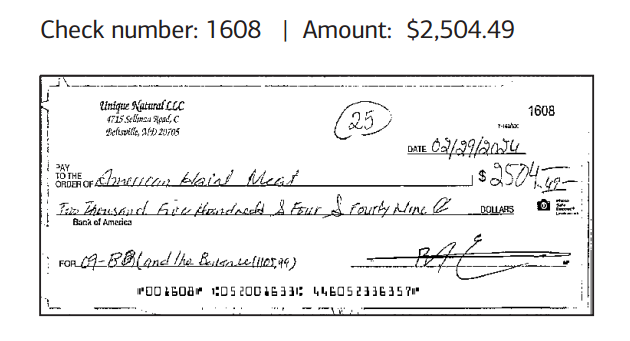 Check number: 1608 | Amount: $2,504.49
Unique Natural LLC
4715 Sellman Road, C
Beltsville, MD 20705
25
1608
DATE 02/29/2024
PAY
TO THE
ORDER OF American Halal Meat
$2504.49
Two Thousand Five Hundred & Four & Fourty Nine
DOLLARS
Bank of America
FOR (and the Balance (1105.99)
⑈001608⑈ ⑆052001633⑆ 446052336357⑈